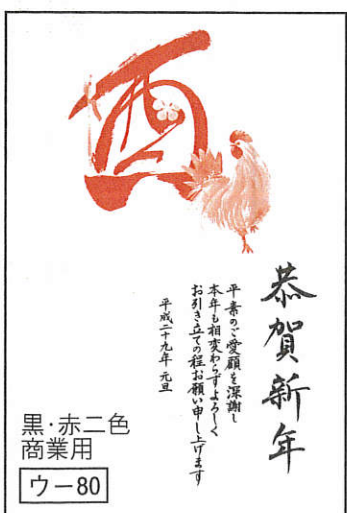 酉
恭賀新年
平素のご愛顧を深謝し
本年も相変わらずよろしく
お引き立ての程お願い申し上げます
平成二十九年 元旦
黒・赤二色
商業用
ウー80